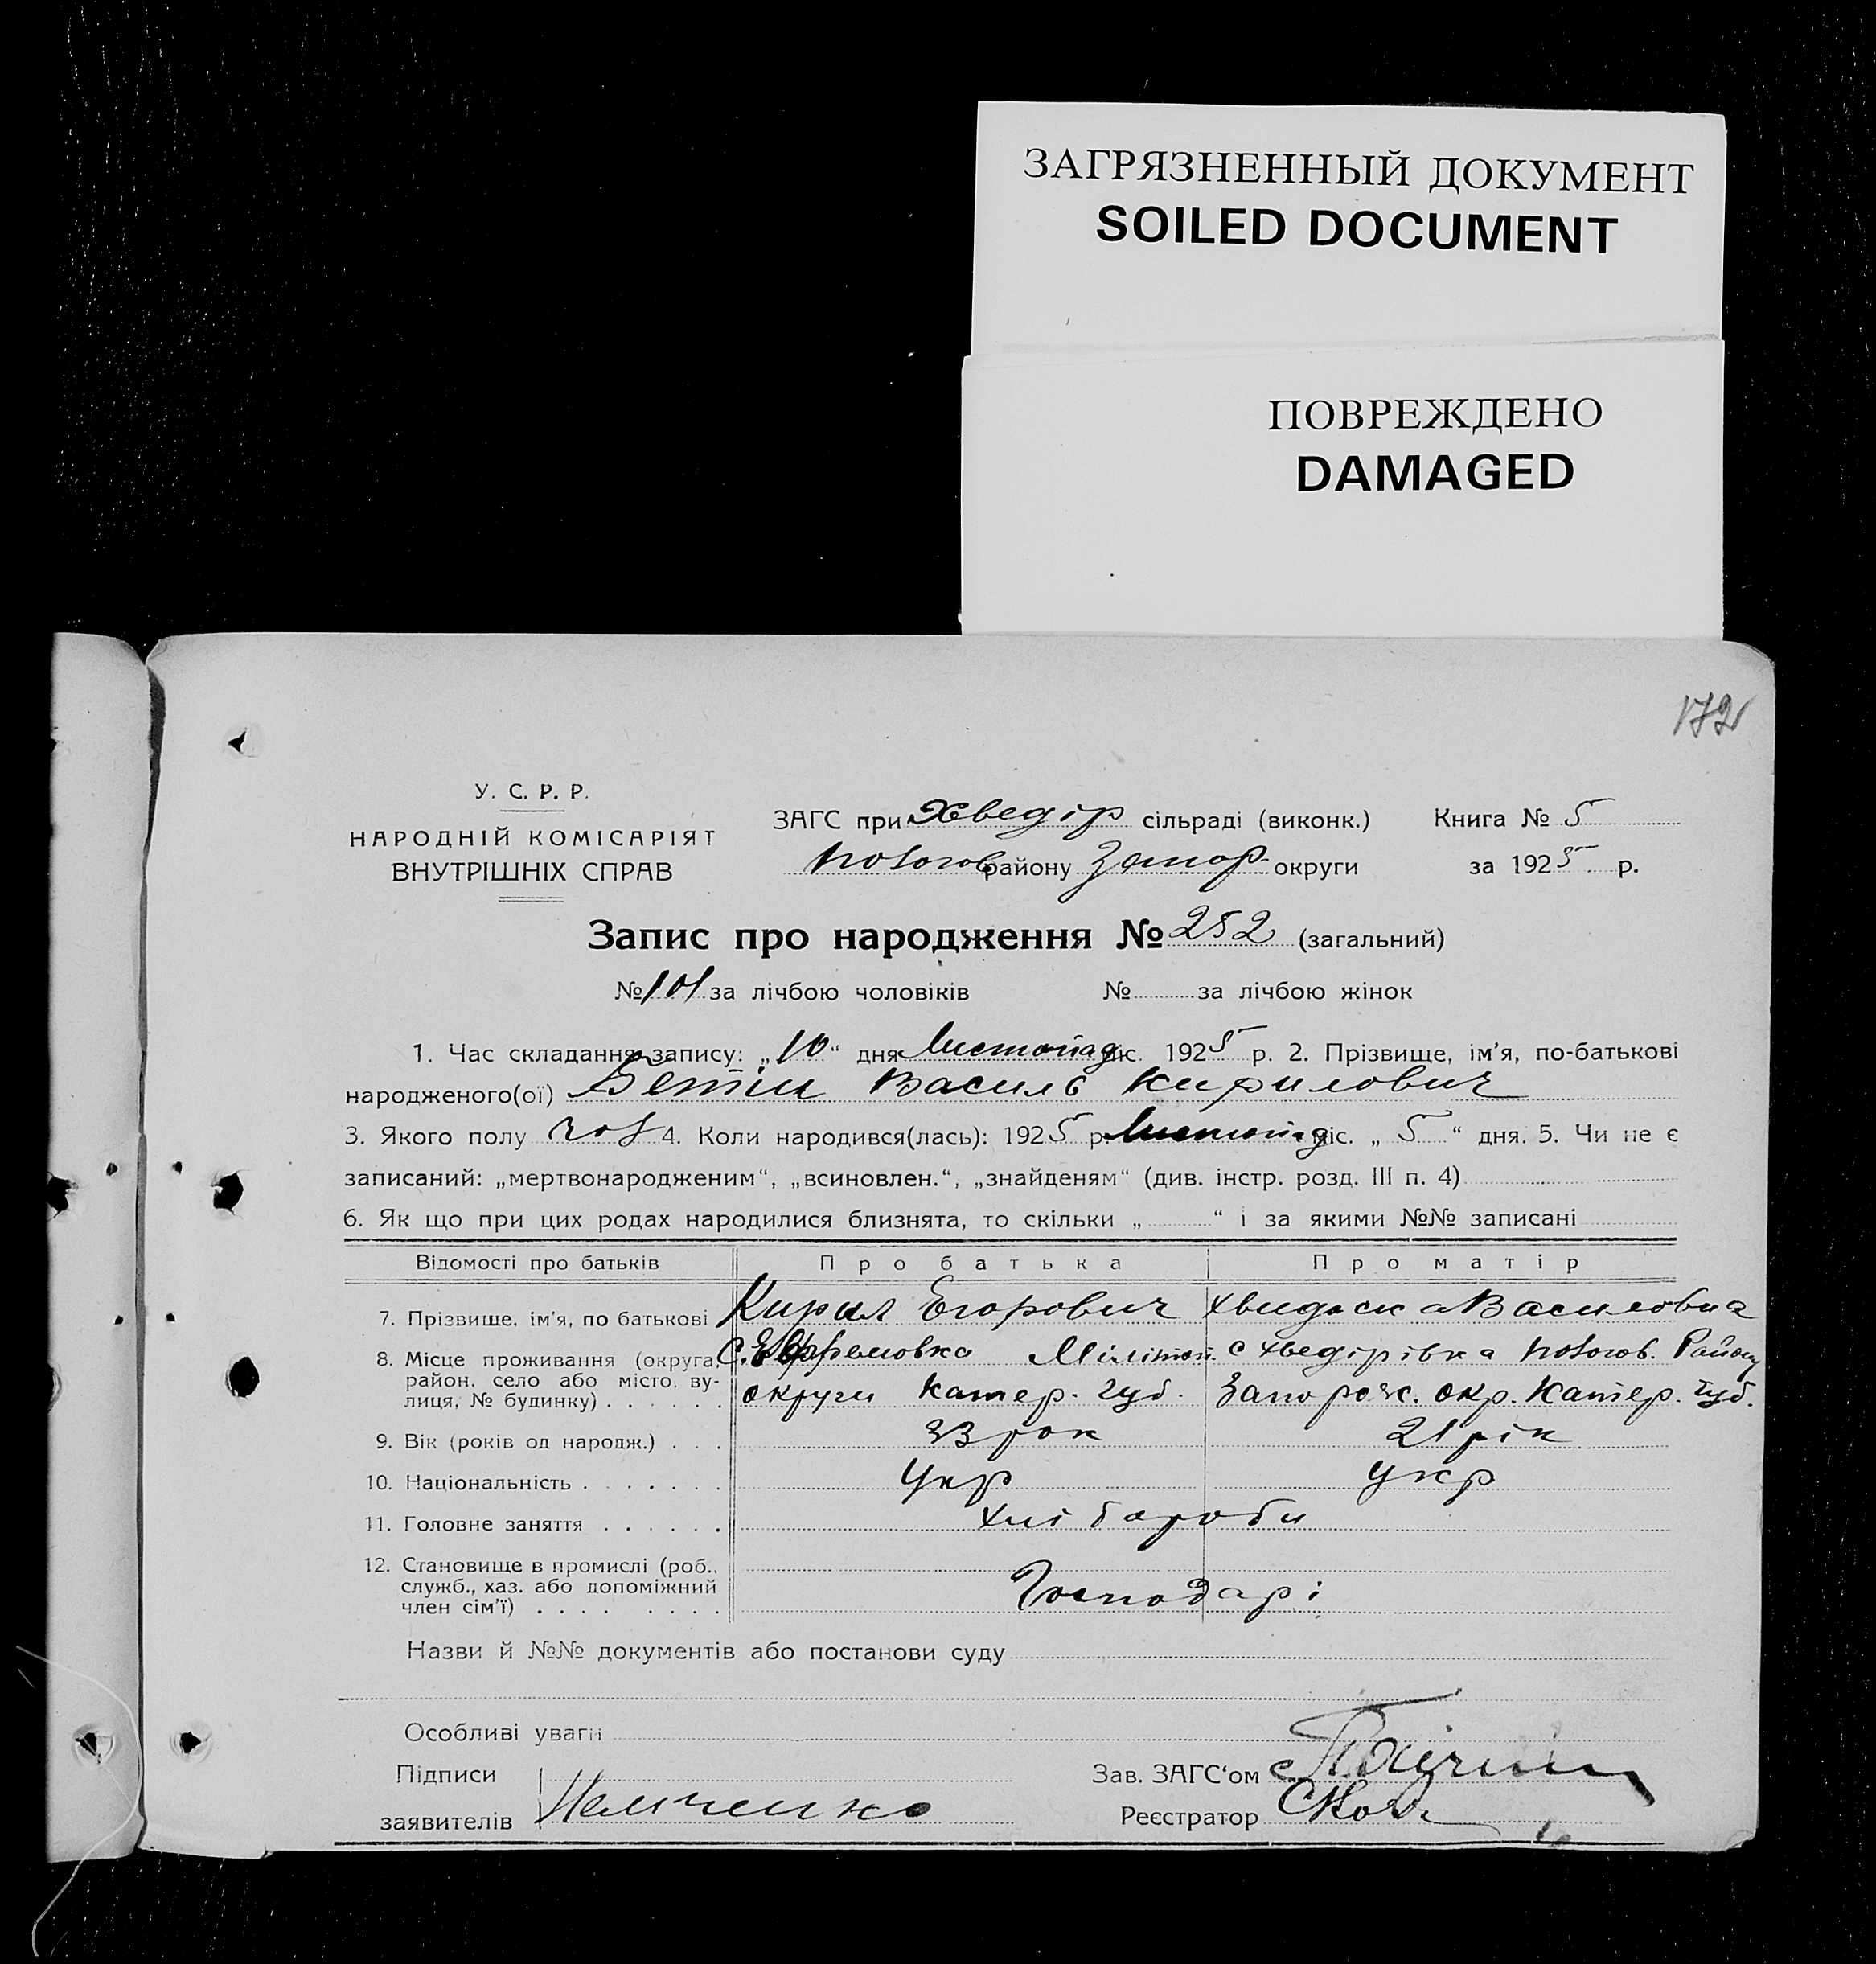 ЗАГРЯЗНЕННЫЙ ДОКУМЕНТ
SOILED DOCUMENT
ПОВРЕЖДЕНО
DAMAGED
172
У. С. Р. Р.
НАРОДНІЙ КОМІСАРІЯТ
ВНУТРІШНІХ СПРАВ
ЗАГС при Хведір сільраді (виконк.)
району Запор округи
Книга № 5
за 1925 р.
Запис про народження № 252 (загальний)
№ 101 за лічбою чоловіків № за лічбою жінок
1. Час складання запису: „10" дня Листопад міс. 1925 р. 2. Прізвище, ім'я, по-батькові
народженого(ої) Василь Кирилович
3. Якого полу чол 4. Коли народився(лась): 1925 р. Листопад міс. „ 5 " дня. 5. Чи не є
записаний: „мертвонародженим", „всиновлен.", „знайденям" (див. інстр. розд. III п. 4)
6. Як що при цих родах народилися близнята, то скільки „ " і за якими №№ записані
Відомості про батьків Про батька Про матір
7. Прізвище, ім'я, по батькові Кирил Егорович Василовна
8. Місце проживання (округа, район, село або місто, вулиця, № будинку) с. Ефремовка Мілітоп. округи Катер. губ. с Хведірівка Район Запорож. окр. Катер. губ.
9. Вік (років од народж.) 33 рок 21 рік
10. Національність Укр Укр
11. Головне заняття Хлібороби
12. Становище в промислі (роб., служб., хаз. або допоміжний член сім'ї) Господарі
Назви й №№ документів або постанови суду
Особливі уваги
Підписи
заявителів
Зав. ЗАГС'ом
Реєстратор